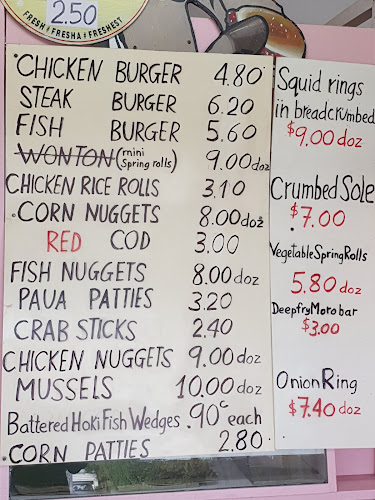 2.50
FRESH FRESHA FRESHEST
CHICKEN BURGER 4.80
STEAK BURGER 6.20
FISH BURGER 5.60
WONTON (mini Spring rolls) 9.00 doz
CHICKEN RICE ROLLS 3.10
CORN NUGGETS 8.00 doz
RED COD 3.00
FISH NUGGETS 8.00 doz
PAUA PATTIES 3.20
CRAB STICKS 2.40
CHICKEN NUGGETS 9.00 doz
MUSSELS 10.00 doz
Battered Hoki Fish Wedges .90c each
CORN PATTIES 2.80
Squid rings
in breadcrumbed
$9.00 doz
Crumbed Sole
$7.00
Vegetable Spring Rolls
5.80 doz
Deepfry Moro bar
$3.00
Onion Ring
$7.40 doz